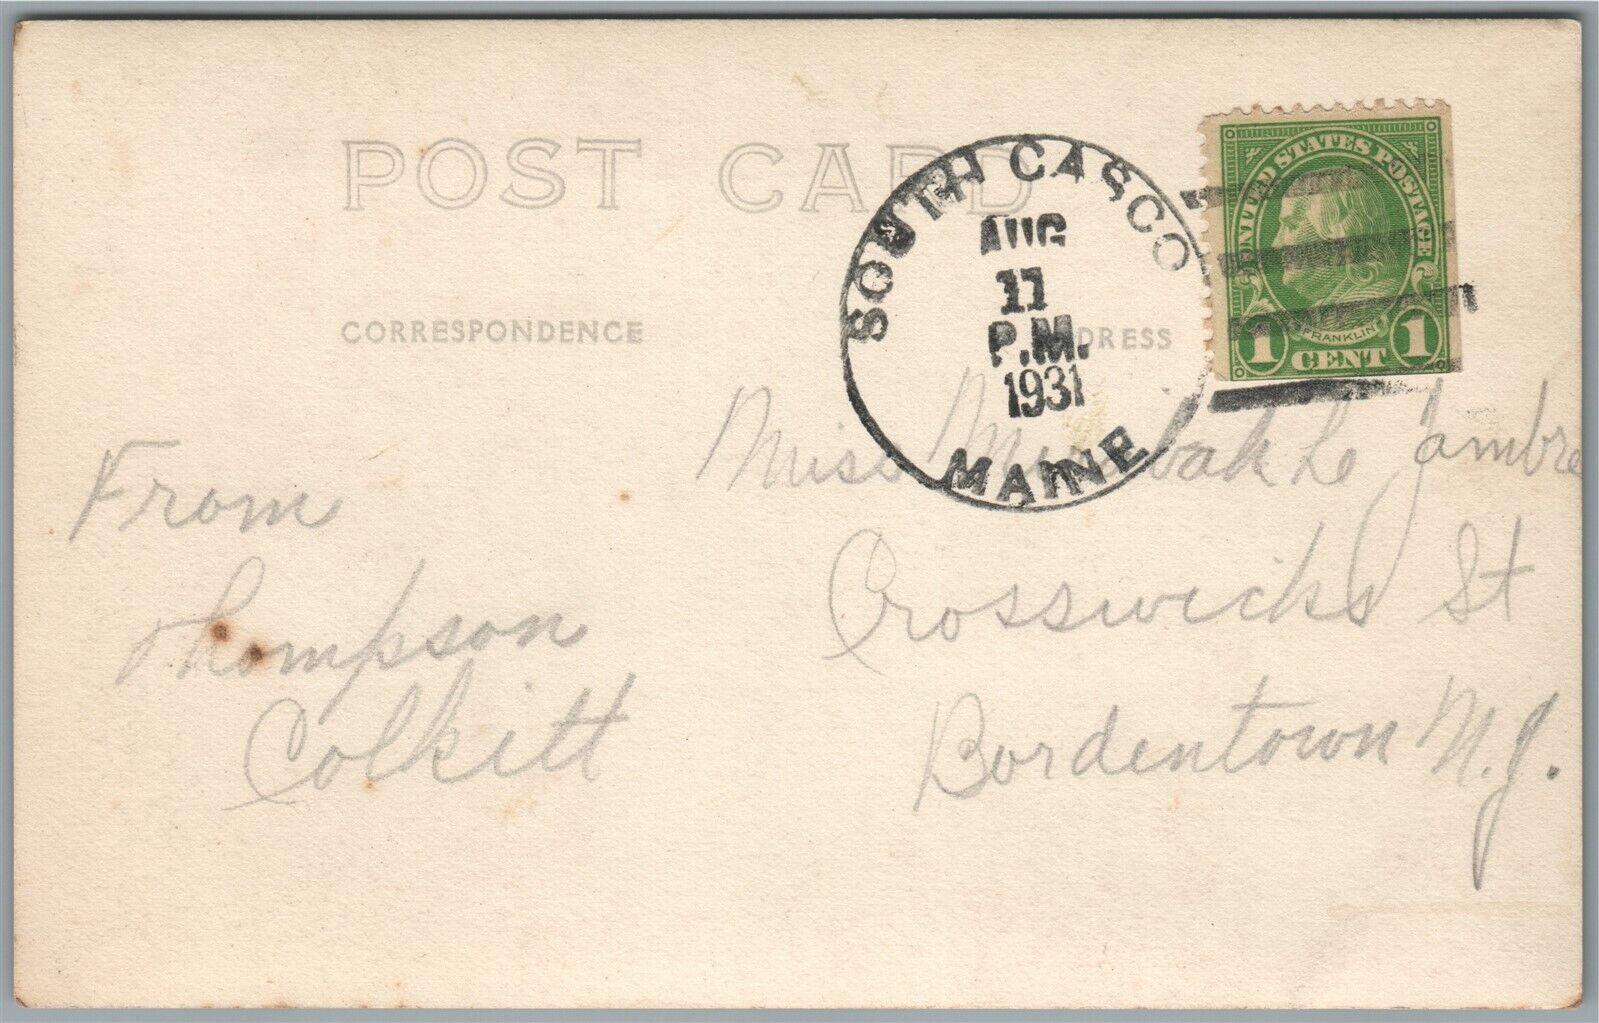 POST CARD
CORRESPONDENCE
SOUTH CASCO
AUG
11
P.M.
1931
MAINE
UNITED STATES POSTAGE
FRANKLIN
1 CENT 1
From
Thompson
Colkitt
Miss L'ambre
Crosswicks St
Bordentown N.J.